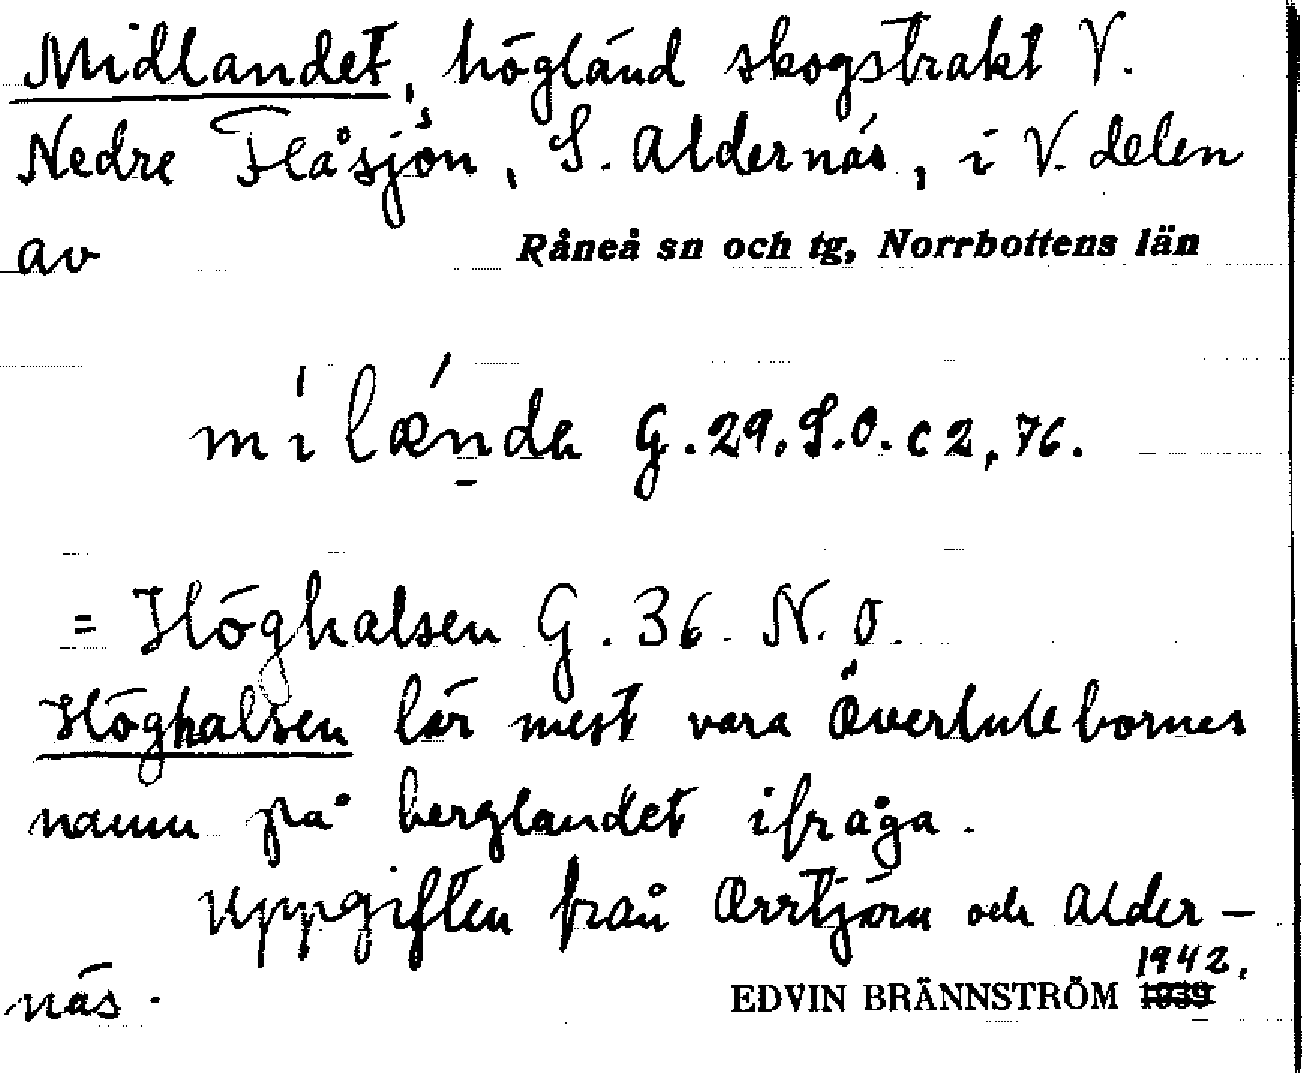 Midlandet, högländ skogstrakt V.
Nedre Flåsjön, S. Aldernäs, i V. delen
av Råneå sn och tg, Norrbottens län
mílǽnda G.29.S.O. c 2, 76.
= Höghalsen G. 36. N. O.
Höghalsen lär mest vara Överlulebornes
namn på berglandet ifråga.
Uppgiften från Orrtjärn och Alder-
näs.
1942.
EDVIN BRÄNNSTRÖM 1939